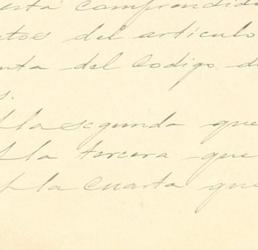 está comprendido
tos del artículo
nta del Código d
s.
A la segunda que
A la tercera que
A la cuarta que